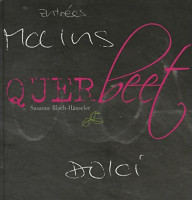 Entrées
Mains
QUERbeet
Susanne Bloch-Hänseler
Dolci